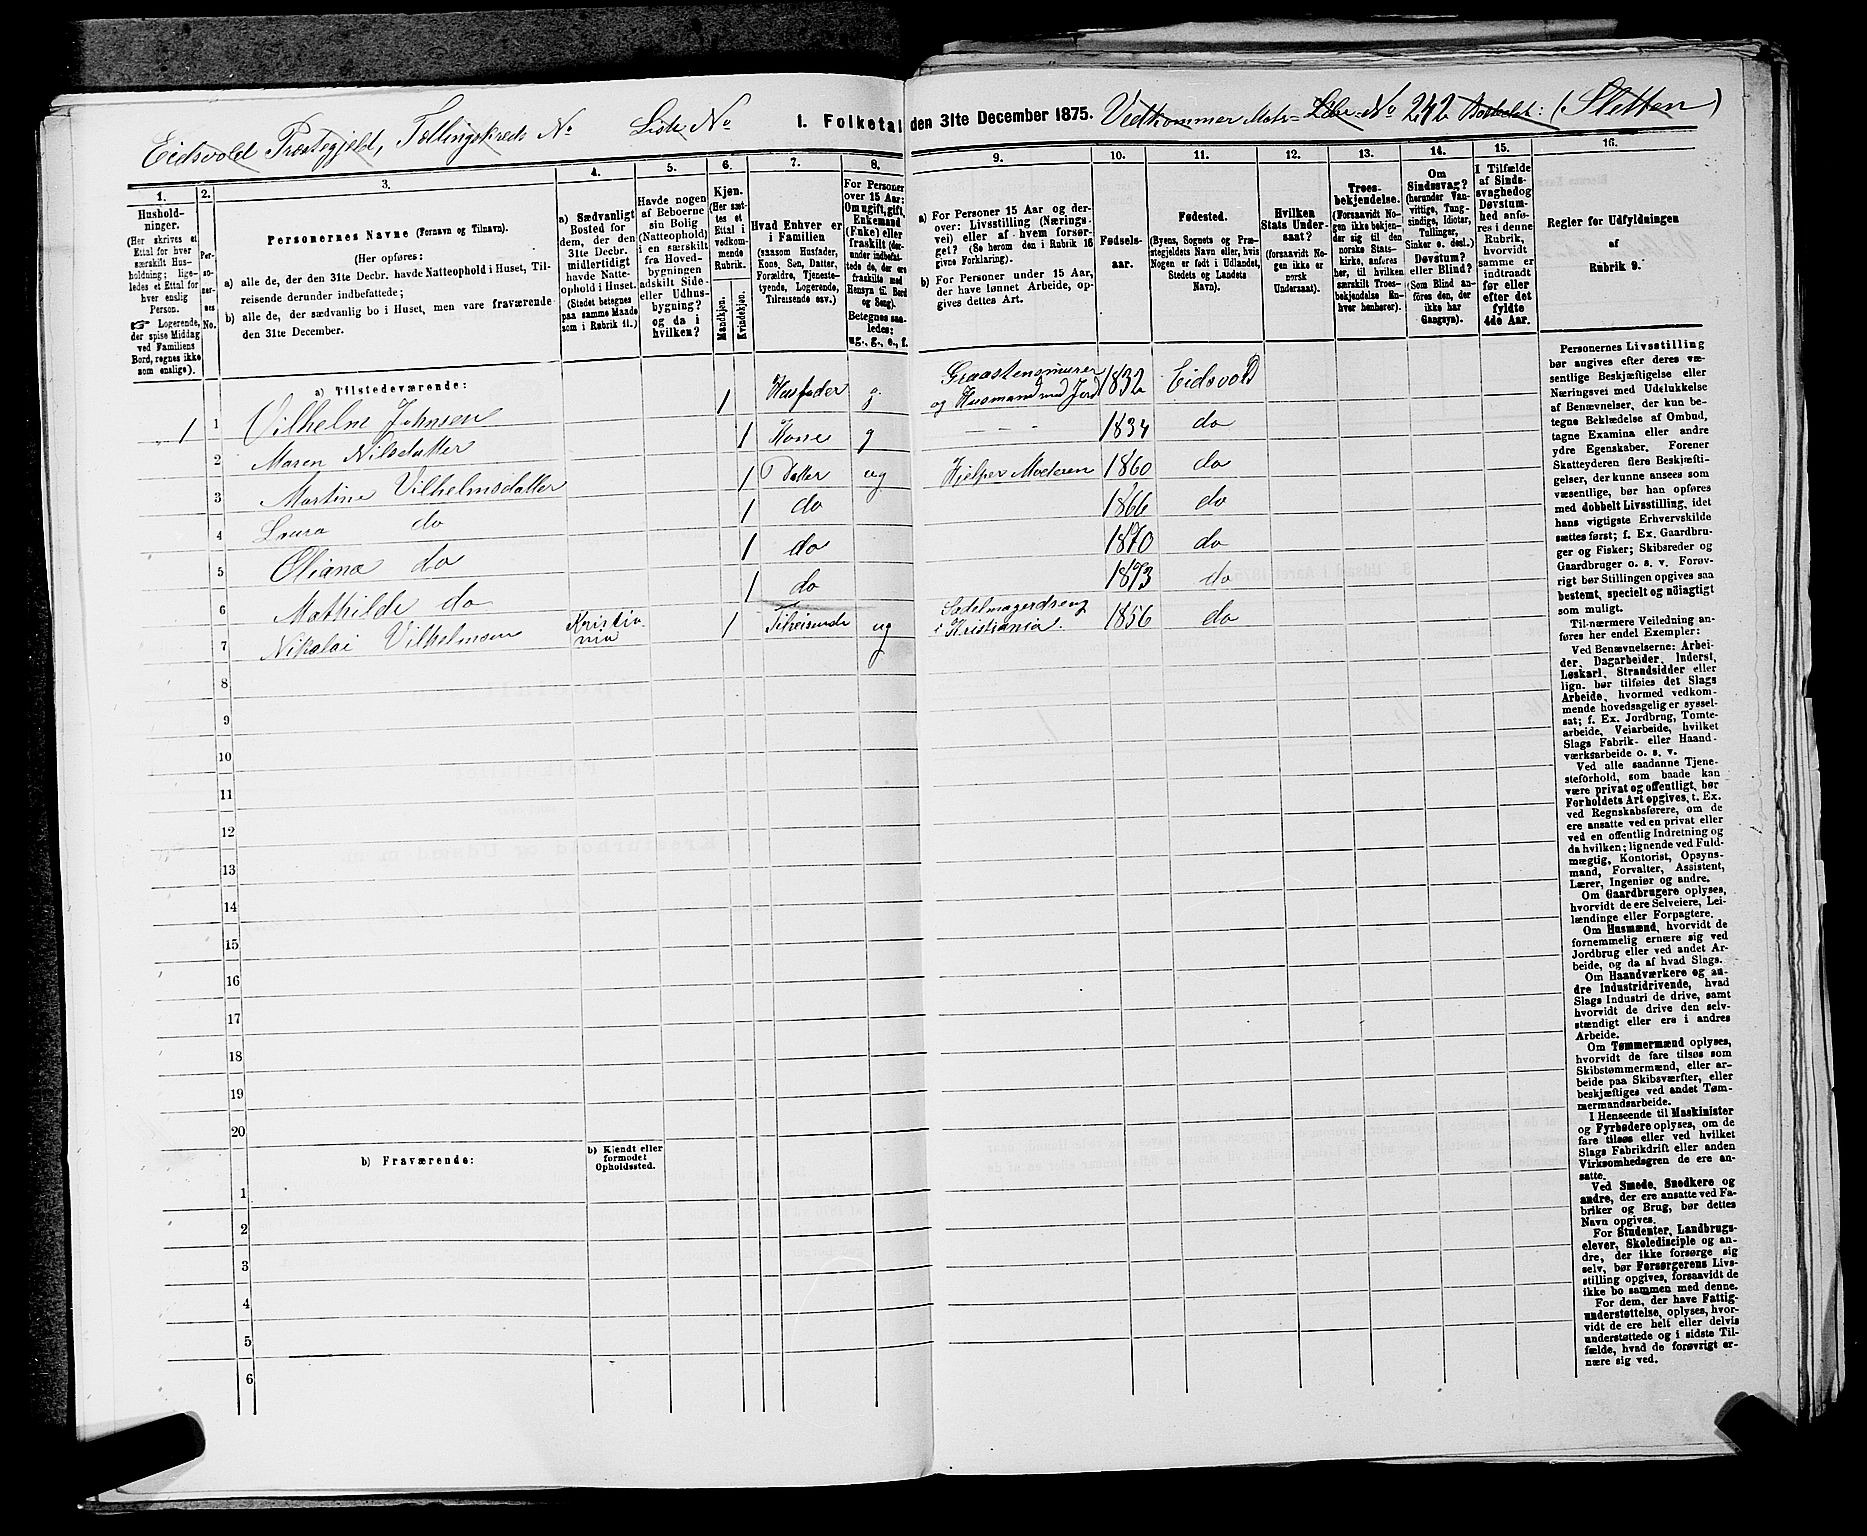 Eidsvold Præstegjeld, Tællingskreds No Liste No
I. Folketal den 31te December 1875.
Vedkommer Matr. Løbe-No 242 Bostedet: (: Sletten )
1.
Hushold-
ninger.
(Her skrives et
Ettal for hver
særskilt Hus-
holdning; lige-
ledes et Ettal for
hver enslig
Person.
☞ Logerende,
der spise Middag
ved Familiens
Bord, regnes ikke
som enslige).
2.
Per-
so-
ner-
nes
No.
3.
Personernes Navne (Fornavn og Tilnavn).
(Her opføres:
a) alle de, der den 31te Decbr. havde Natteophold i Huset, Til-
reisende derunder indbefattede;
b) alle de, der sædvanlig bo i Huset, men vare fraværende
den 31te December.
4.
a) Sædvanligt
Bosted for
dem, der den
31te Decbr.
midlertidigt
havde Natte-
ophold i Huset.
(Stedet betegnes
paa samme Maade
som i Rubrik 11.)
5.
Havde nogen
af Beboerne
sin Bolig
(Natteophold)
i en særskilt
fra Hoved-
bygningen
adskilt Side-
eller Udhus-
bygning?
og da i
hvilken?
6.
Kjøn.
(Her sæt-
tes et
Ettal i
vedkom-
mende
Rubrik.
Mandkjøn.
Kvindekjøn.
7.
Hvad Enhver er
i Familien
(saasom Husfader,
Kone, Søn, Datter,
Forældre, Tjeneste-
tyende, Logerende,
Tilreisende osv.)
8.
For Personer
over 15 Aar:
Om ugift, gift,
Enkemand
(Enke) eller
fraskilt (der-
under indbefat-
tede de, der ere
fraskilte med
Hensyn til Bord
og Seng).
Betegnes saa-
ledes:
ug., g., e., f.
9.
a) For Personer 15 Aar og der-
over: Livsstilling (Nærings-
vei) eller af hvem forsør-
get? (Se herom den i Rubrik 16
givne Forklaring).
b) For Personer under 15 Aar,
der have lønnet Arbeide, op-
gives dettes Art.
10.
Fødsels-
aar.
11.
Fødested.
(Byens, Sognets og Præ-
stegjeldets Navn eller, hvis
Nogen er født i Udlandet,
Stedets og Landets
Navn).
12.
Hvilken
Stats Under-
saat?
(forsaavidt No-
gen ikke er
norsk
Undersaat).
13.
Troes-
bekjendelse.
(Forsaavidt No-
gen ikke bekjen-
der sig til den
norske Stats-
kirke, anføres
her, til hvilken
særskilt Troes-
bekjendelse En-
hver henhører).
14.
Om
Sindssvag?
(herunder Van-
vittige, Tung-
sindige, Idioter,
Tullinger,
Sinker o. desl.)
Døvstum?
eller Blind?
(Som Blind an-
føres den, der
ikke har
Gangsyn).
15.
I Tilfælde
af Sinds-
svaghed og
Døvstum-
hed anfø-
res i denne
Rubrik,
hvorvidt
samme er
indtraadt
før eller
efter det
fyldte
4de Aar.
16.
Regler for Udfyldningen
af
Rubrik 9.
a) Tilstedeværende:
1 1 Vilhelm Johnsen 1 Husfader g Graastensmurer og Husmand med Jord 1832 Eidsvold
2 Maren Nilsdatter 1 Kone g — — — 1834 do
3 Martine Vilhelmsdatter 1 Datter ug Hjelper Moderen 1860 do
4 Laura do 1 do 1866 do
5 Oliana do 1 do 1870 do
6 Mathilde do 1 do 1873 do
7 Nikolai Vilhelmsen Kristia-nia 1 Tilreisende ug Sadelmagerdreng i Kristiania. 1856 do
8
9
10
11
12
13
14
15
16
17
18
19
20
b) Fraværende:
b) Kjendt eller
formodet
Opholdssted.
1
2
3
4
5
6
Personernes Livsstilling
bør angives efter deres væ-
sentlige Beskjæftigelse eller
Næringsvei med Udelukkelse
af Benævnelser, der kun be-
tegne Beklædelse af Ombud,
tagne Examina eller andre
ydre Egenskaber. Forener
Skatteyderen flere Beskjæfti-
gelser, der kunne ansees som
væsentlige, bør han opføres
med dobbelt Livsstilling, idet
hans vigtigste Erhvervskilde
sættes først; f. Ex. Gaardbru-
ger og Fisker; Skibsreder og
Gaardbruger o. s. v. Forøv-
rigt bør Stillingen opgives saa
bestemt, specielt og nøiagtigt
som muligt.
Til nærmere Veiledning an-
føres her endel Exempler:
Ved Benævnelserne: Arbei-
der, Dagarbeider, Inderst,
Løskarl, Strandsidder eller
lign. bør tilføies det Slags
Arbeide, hvormed vedkom-
mende hovedsagelig er syssel-
sat; f. Ex. Jordbrug, Tomte-
arbeide, Veiarbeide, hvilket
Slags Fabrik- eller Haand-
værksarbeide o. s. v.
Ved alle saadanne Tjene-
steforhold, som baade kan
være privat og offentligt, bør
Forholdets Art opgives, t. Ex.
ved Regnskabsførere, om de
ere ansatte ved en privat eller
ved en offentlig Indretning og
da hvilken; lignende ved Fuld-
mægtig, Kontorist, Opsyns-
mand, Forvalter, Assistent,
Lærer, Ingeniør og andre.
Om Gaardbrugere oplyses,
hvorvidt de ere Selveiere, Lei-
lændinge eller Forpagtere.
Om Husmænd, hvorvidt de
fornemmelig ernære sig ved
Jordbrug eller ved andet Ar-
beide, og da af hvad Slags.
Om Haandværkere og an-
dre Industridrivende, hvad
Slags Industri de drive, samt
hvorvidt de drive den selv-
stændigt eller ere i andres
Arbeide.
Om Tømmermænd oplyses,
hvorvidt de fare tilsøs som
Skibstømmermænd, eller ar-
beide paa Skibsværfter, eller
beskjæftiges ved andet Tøm-
mermandsarbeide.
I Henseende til Maskinister
og Fyrbødere oplyses, om de
fare tilsøs eller ved hvilket
Slags Fabrikdrift eller anden
Virksomhedsgren de ere an-
satte.
Ved Smede, Snedkere og
andre, der ere ansatte ved Fa-
briker og Brug, bør dettes
Navn opgives.
For Studenter, Landbrugs-
elever, Skoledisciple og an-
dre, der ikke forsørge sig
selv, bør Forsørgerens Livs-
stilling opgives, forsaavidt de
ikke bo sammen med denne.
For dem, der have Fattig-
understøttelse, oplyses, hvor-
vidt de ere helt eller delvis
understøttede og i sidste Til-
fælde, hvad de forøvrigt er-
nære sig ved.